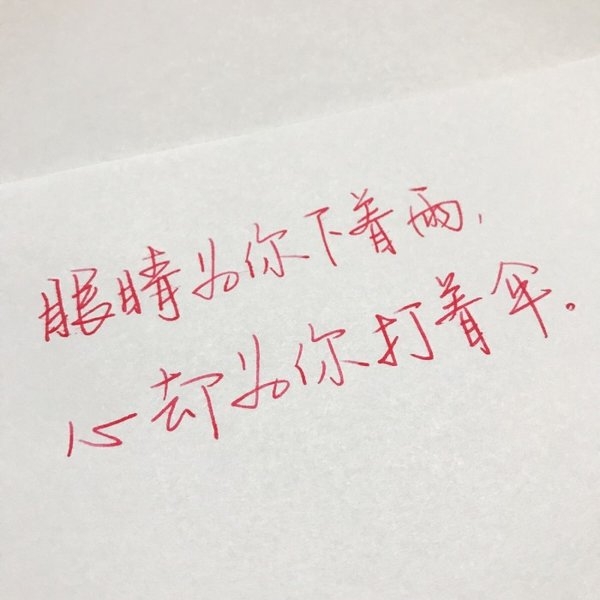 眼睛为你下着雨,
心却为你打着伞。